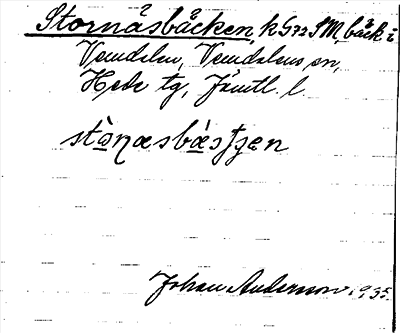 Stornäsbäcken, k G72 SM, bäck i
Vemdalen, Vemdalens sn,
Hede tg, Jämtl. l.
Johan Andersson 1935.